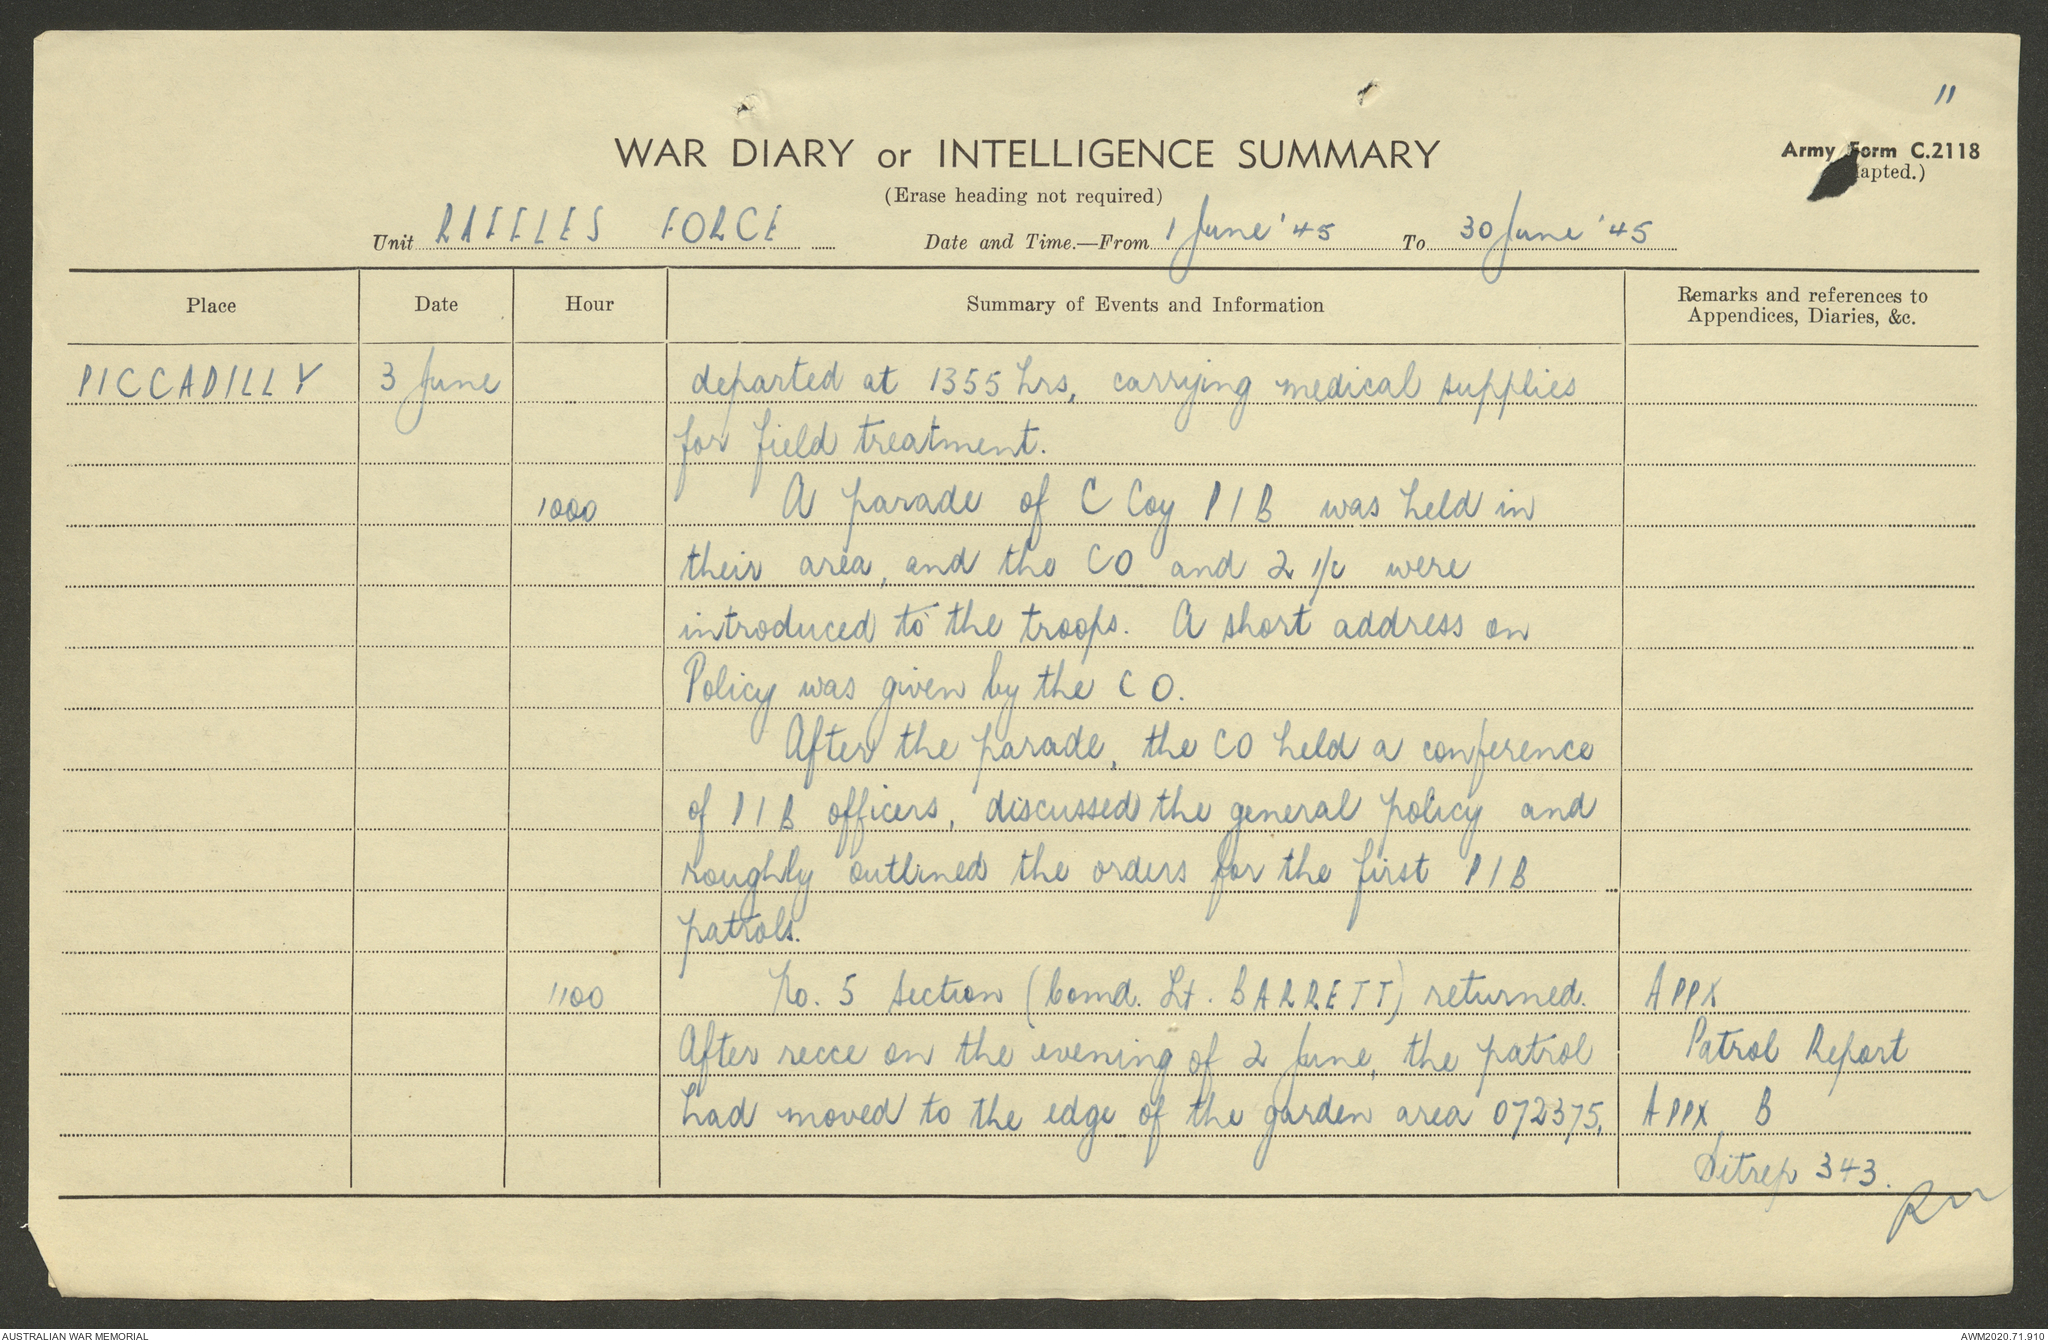 11
WAR DIARY or INTELLIGENCE SUMMARY
Army Form C.2118
(Erase heading not required)
apted.)
Unit RAFFLES FORCE Date and Time.—From 1 June '45 To 30 June '45
Place Date Hour Summary of Events and Information Remarks and references to
Appendices, Diaries, &c.
PICCADILLY 3 June departed at 1355 hrs, carrying medical supplies
for field treatment.
1000 A parade of C Coy PIB was held in
their area, and the CO and 2 i/c were
introduced to the troops. A short address on
Policy was given by the CO.
After the parade, the CO held a conference
of PIB officers, discussed the general policy and
roughly outlined the orders for the first PIB
patrols.
1100 No. 5 Section (Comd. Lt. BARRETT) returned. APPX
After recce on the evening of 2 June, the patrol Patrol Report
had moved to the edge of the garden area 072375, APPX B
Sitrep 343.
AUSTRALIAN WAR MEMORIAL
AWM2020.71.910